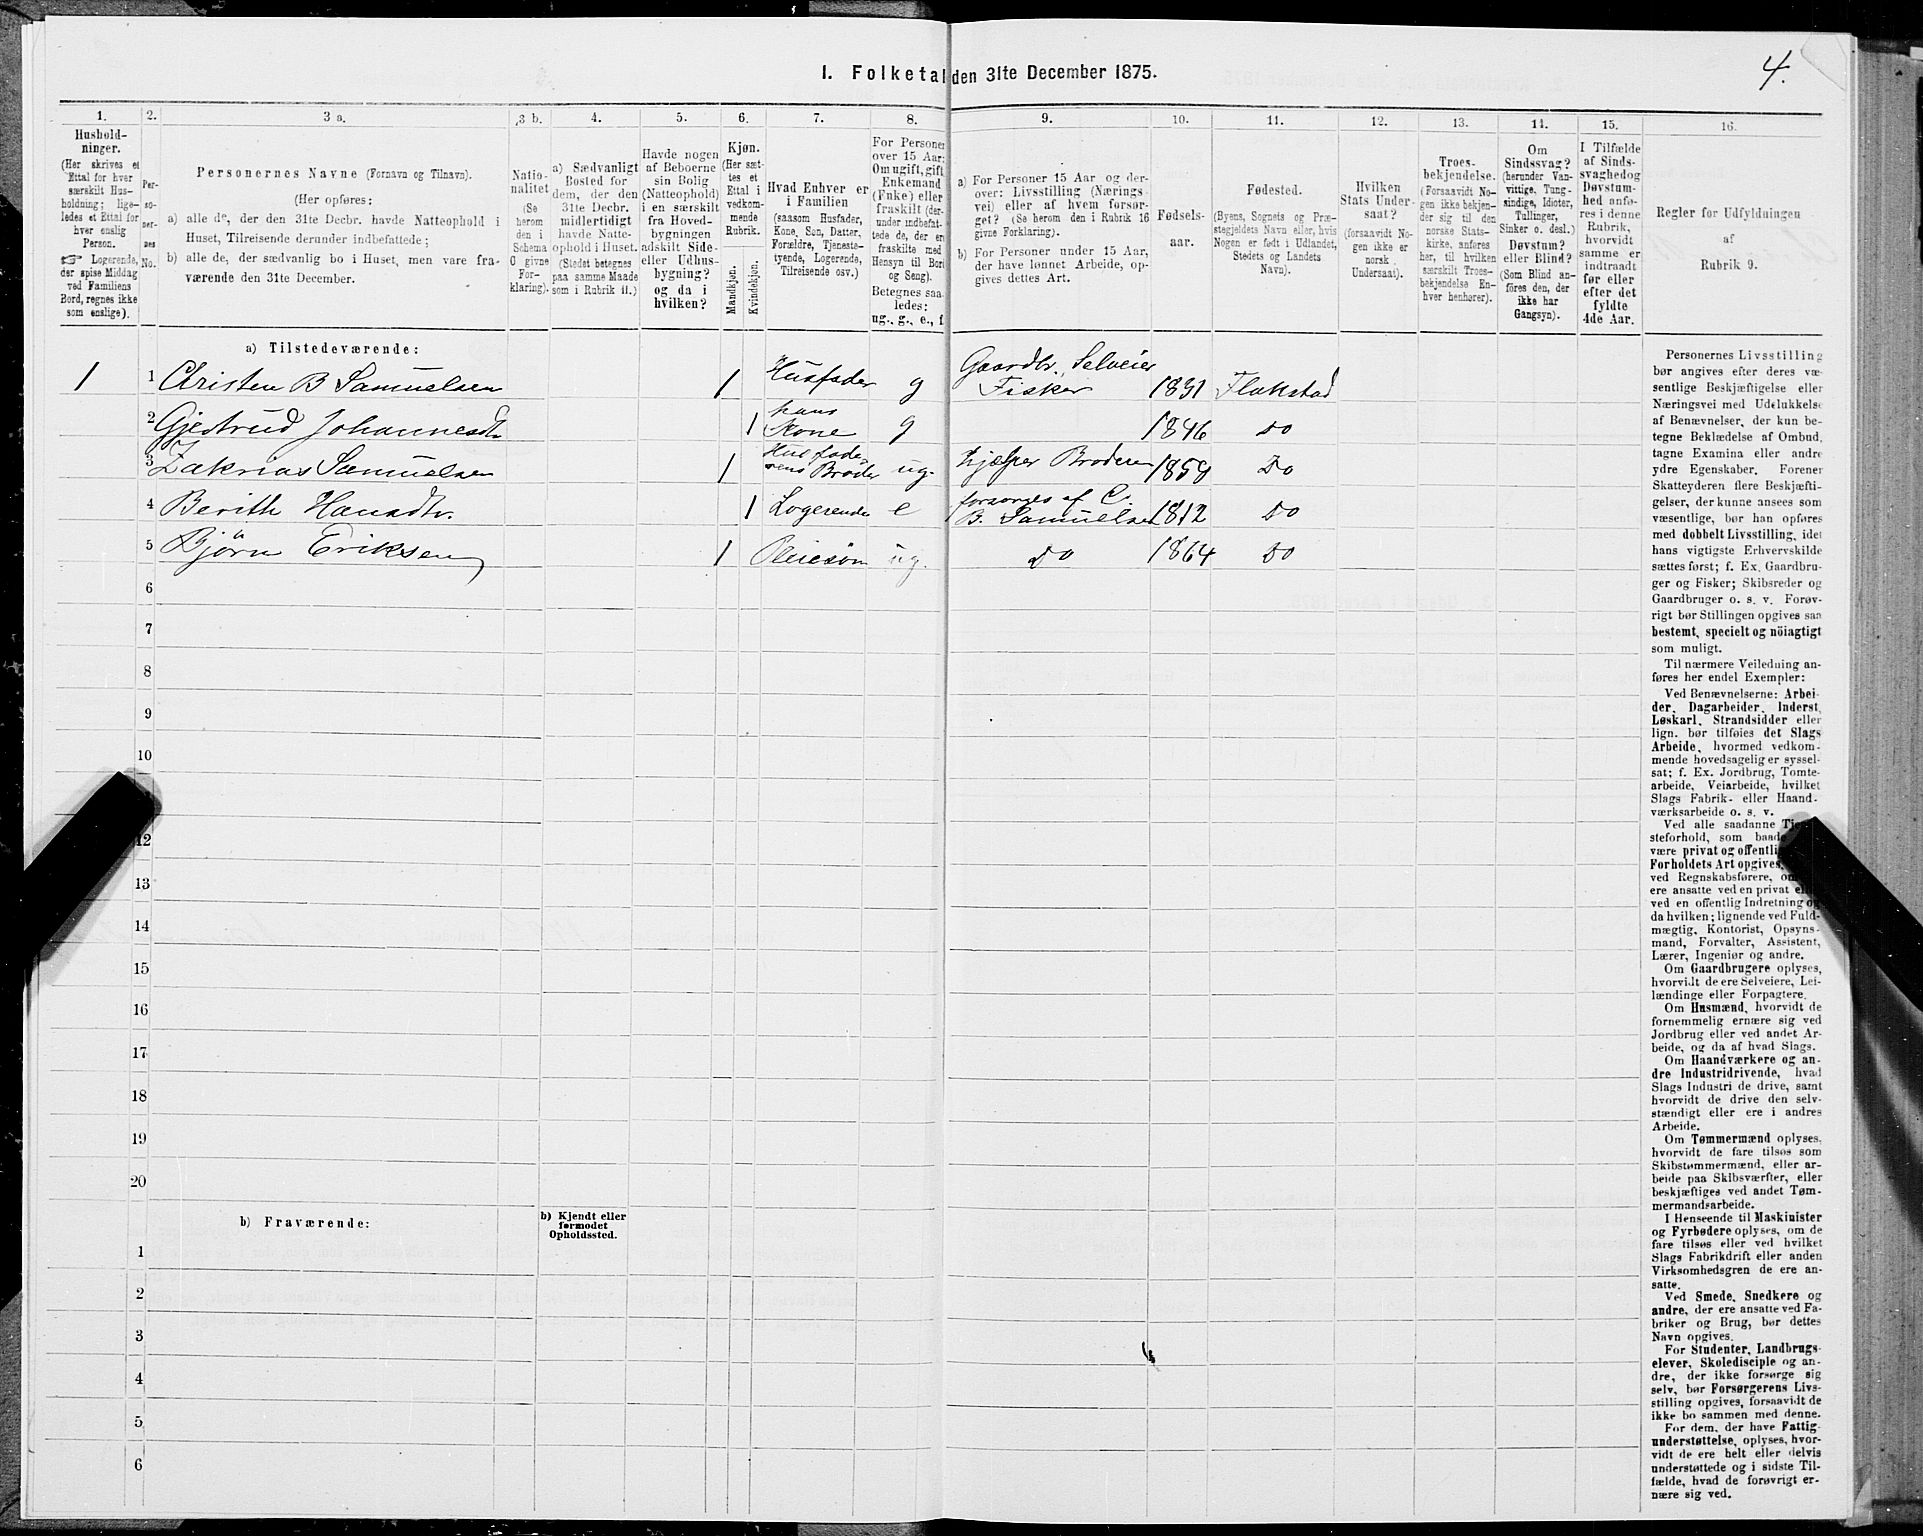 4.
I. Folketal den 31te December 1875.
1. 2. 3 a. 3 b. 4. 5. 6. 7. 8. 9. 10. 11. 12. 13. 14. 15. 16.
Hushold-
ninger.
(Her skrives et
Ettal for hver
særskilt Hus-
holdning; lige-
ledes et Ettal for
hver enslig
Person.
☞ Logerende,
der spise Middag
ved Familiens
Bord, regnes ikke
som enslige).
Per-
so-
ner-
nes
No.
Personernes Navne (Fornavn og Tilnavn).
(Her opføres:
a) alle de, der den 31te Decbr. havde Natteophold i
Huset, Tilreisende derunder indbefattede;
b) alle de, der sædvanlig bo i Huset, men vare fra-
værende den 31te December.
Natio-
nalitet
(Se
herom
den i
Schema
O givne
For-
klaring).
a) Sædvanligt
Bosted for
dem, der den
31te Decbr.
midlertidigt
havde Natte-
ophold i Huset.
(Stedet betegnes
paa samme Maade
som i Rubrik 11.)
Havde nogen
af Beboerne
sin Bolig
(Natteophold)
i en særskilt
fra Hoved-
bygningen
adskilt Side-
eller Udhus-
bygning?
og da i
hvilken?
Kjøn.
(Her sæt-
tes et
Ettal i
vedkom-
mende
Rubrik.
Mandkjøn.
Kvindekjøn.
Hvad Enhver er
i Familien
(saasom Husfader,
Kone, Søn, Datter,
Forældre, Tjeneste-
tyende, Logerende,
Tilreisende osv.)
For Personer
over 15 Aar:
Om ugift, gift,
Enkemand
(Enke) eller
fraskilt (der-
under indbefat-
tede de, der er
fraskilte med
Hensyn til Bord
og Seng).
Betegnes saa-
ledes:
ug., g., e., f.
a) For Personer 15 Aar og der-
over: Livsstilling (Nærings-
vei) eller af hvem forsør-
get? (Se herom den i Rubrik 16
givne Forklaring).
b) For Personer under 15 Aar,
der have lønnet Arbeide, op-
gives dettes Art.
Fødsels-
aar.
Fødested.
(Byens, Sognets og Præ-
stegjeldets Navn eller, hvis
Nogen er født i Udlandet,
Stedets og Landets
Navn).
Hvilken
Stats Under-
saat?
(forsaavidt No-
gen ikke er
norsk
Undersaat).
Troes-
bekjendelse.
(Forsaavidt No-
gen ikke bekjen-
der sig til den
norske Stats-
kirke, anføres
her, til hvilken
særskilt Troes-
bekjendelse En-
hver henhører).
Om
Sindssvag?
(herunder Van-
vittige, Tung-
sindige, Idioter,
Tullinger,
Sinker o. desl.)
Døvstum?
eller Blind?
(Som Blind an-
føres den, der
ikke har
Gangsyn).
I Tilfælde
af Sinds-
svaghed og
Døvstum-
hed anfø-
res i denne
Rubrik,
hvorvidt
samme er
indtraadt
før eller
efter det
fyldte
4de Aar.
Regler for Udfyldningen
af
Rubrik 9.
a) Tilstedeværende:
1 1 Christen B Samuelsen 1 Husfader g Gaardbr. Selveier Fisker 1831 Flakstad
2 Gjertrud Johannesdtr 1 hans Kone g 1846 Do
3 Zakrias Samuelsen 1 Husfade-rens Broder ug. hjælper Broderen 1859 Do
4 Berith Hansdtr. 1 Logerende e forsørges af C. B. Samuelsen 1812 Do
5 Bjørn Eriksen 1 Pleiesøn ug. Do 1864 Do
6
7
8
9
10
12
13
14
15
16
17
18
19
20
b) Fraværende:
b) Kjendt eller
formodet
Opholdssted.
1
2
3
4
5
6
Personernes Livsstilling
bør angives efter deres væ-
sentlige Beskjæftigelse eller
Næringsvei med Udelukkelse
af Benævnelser, der kun be-
tegne Beklædelse af Ombud,
tagne Examina eller andre
ydre Egenskaber. Forener
Skatteyderen flere Beskjæfti-
gelser, der kunne ansees som
væsentlige, bør han opføres
med dobbelt Livsstilling, idet
hans vigtigste Erhvervskilde
sættes først; f. Ex. Gaardbru-
ger og Fisker; Skibsreder og
Gaardbruger o. s. v. Forøv-
rigt bør Stillingen opgives saa
bestemt, specielt og nöiagtigt
som muligt.
Til nærmere Veiledning an-
føres her endel Exempler:
Ved Benævnelserne: Arbei-
der, Dagarbeider, Inderst,
Løskarl, Strandsidder eller
lign. bør tilføies det Slags
Arbeide, hvormed vedkom-
mende hovedsagelig er syssel-
sat; f. Ex. Jordbrug, Tomte-
arbeide, Veiarbeide, hvilket
Slags Fabrik- eller Haand-
værksarbeide o. s. v.
Ved alle saadanne
steforhold, som baade
være privat og offentlig
Forholdets Art opgives,
ved Regnskabsførere,
ere ansatte ved en privat
ved en offentlig Indretning og
da hvilken; lignende ved Fuld-
mægtig, Kontorist, Opsyns-
mand, Forvalter, Assistent,
Lærer, Ingeniør og andre.
Om Gaardbrugere oplyses,
hvorvidt de ere Selveiere, Lei-
lændinge eller Forpagtere.
Om Husmænd, hvorvidt de
fornemmelig ernære sig ved
Jordbrug eller ved andet Ar-
beide, og da af hvad Slags.
Om Haandværkere og an-
dre Industridrivende, hvad
Slags Industri de drive, samt
hvorvidt de drive den selv-
stændigt eller ere i andres
Arbeide.
Om Tømmermænd oplyses,
hvorvidt de fare tilsøs som
Skibstømmermænd, eller ar-
beide paa Skibsværfter, eller
beskjæftiges ved andet Tøm-
mermandsarbeide.
I Henseende til Maskinister
og Fyrbødere oplyses, om de
fare tilsøs eller ved hvilket
Slags Fabrikdrift eller anden
Virksomhedsgren de ere an-
satte.
Ved Smede, Snedkere og
andre, der ere ansatte ved Fa-
briker og Brug, bør dettes
Navn opgives.
For Studenter, Landbrugs-
elever, Skoledisciple og an-
dre, der ikke forsørge sig
selv, bør Forsørgerens Livs-
stilling opgives, forsaavidt de
ikke bo sammen med denne.
For dem, der have Fattig-
understøttelse, oplyses, hvor-
vidt de ere helt eller delvis
understøttede og i sidste Til-
fælde, hvad de forøvrigt er-
nære sig ved.